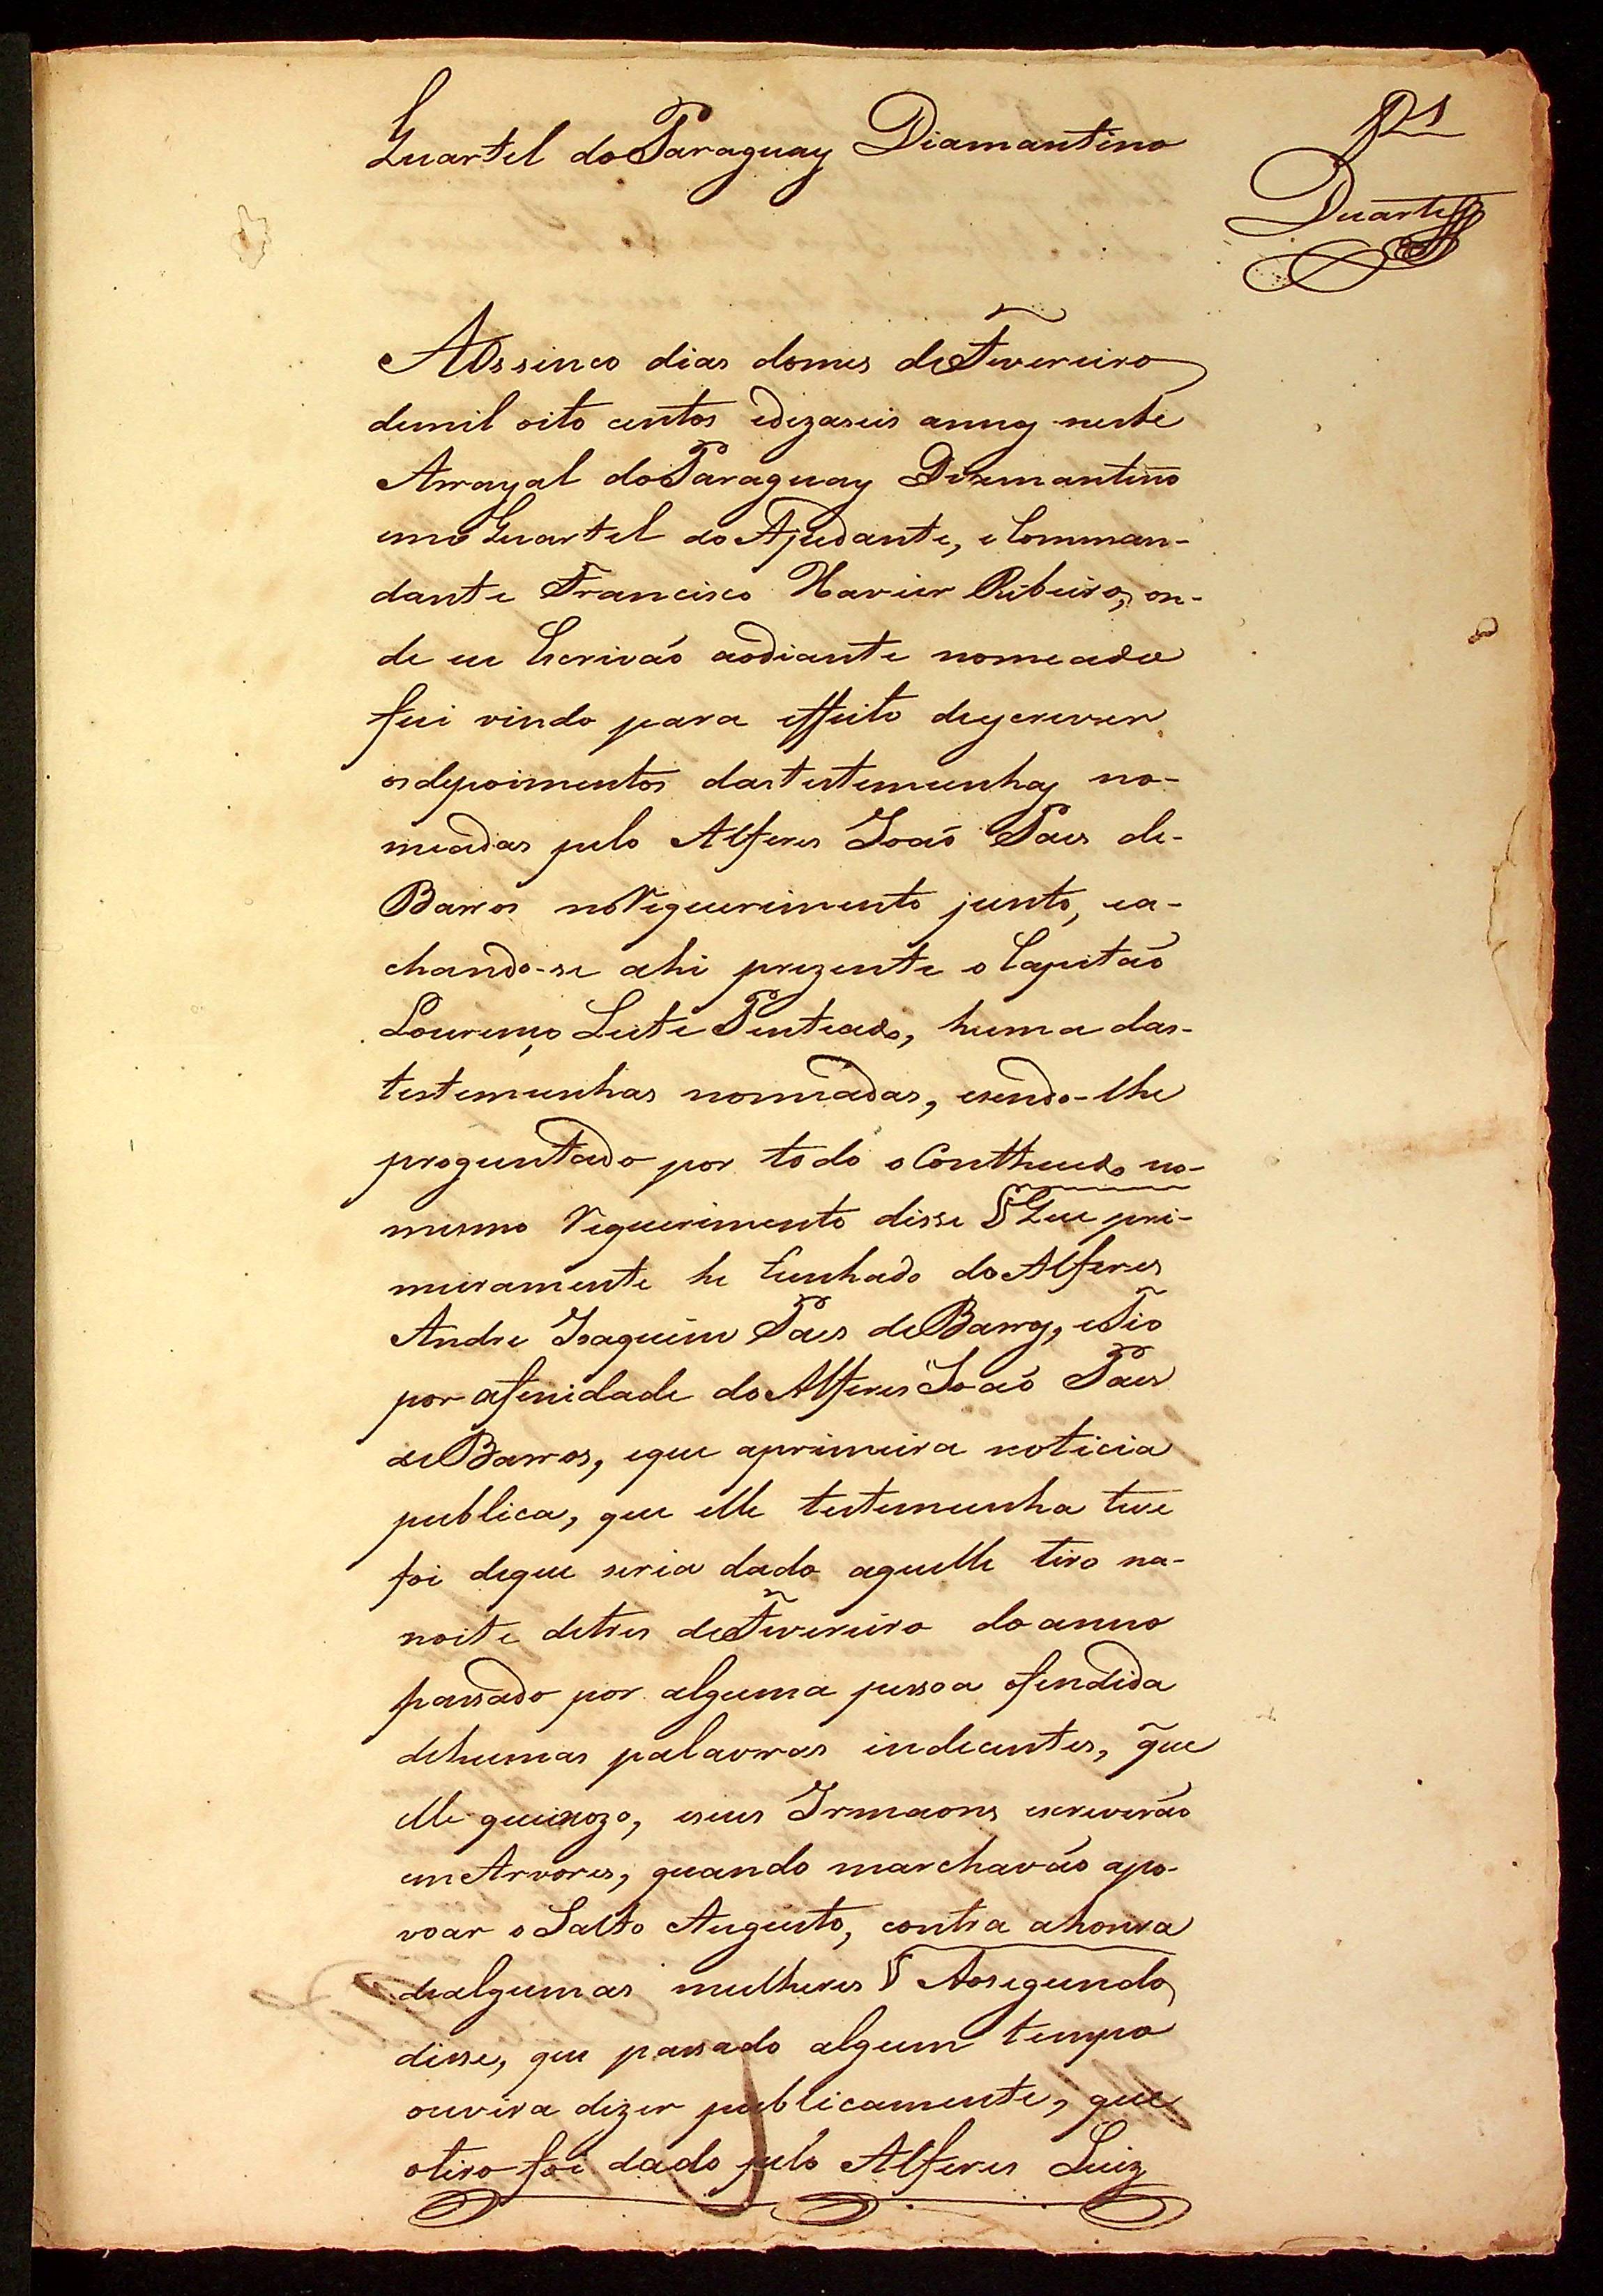 Quartel do Paraguay Diamantino
Duarte
Aos sinco dias domes de Fevereiro
demil oito centos edezaseis annos neste
Arrayal do Paraguay Diamantino
emo Quartel do Ajudante, e Comman-
dante Francisco Xavier Ribeiro, on-
de eu Escrivaõ aodiante nomeado
fui vindo para effeito deescrever
os depoimentos dastestemunhas no-
meadas pelo Alferes Joaõ Paes de-
Barros noRequerimento junto, ea-
chando-se ahi prezente o Capitaõ
Lourenço Leite Penteado, huma das-
testemunhas nomeadas, esendo-lhe
proguntado por todo o Contheudo no-
mesmo Requerimento disse § Que pri-
meiramente he Cunhado do Alferes
Andre Joaquim Paes de Barros, e Tio
por afinidade do Alferes Joaõ Paes
de Barros, eque aprimeira noticia
publica, que elle testemunha teve
foi deque seria dado aquelle tiro na-
noite detres de Fevereiro do anno
passado por alguma pessoa ofendida
dehumas palavras indecentes, que
elle queixozo, eseus Irmaons escreveraõ
em Arvores, quando marchavaõ apo-
voar o Salto Augusto, contra ahonra
dealgumas mulheres § Aosegundo
disse, que passado algum tempo
ouvira dizer publicamente, que
otiro foi dado pelo Alferes Luiz